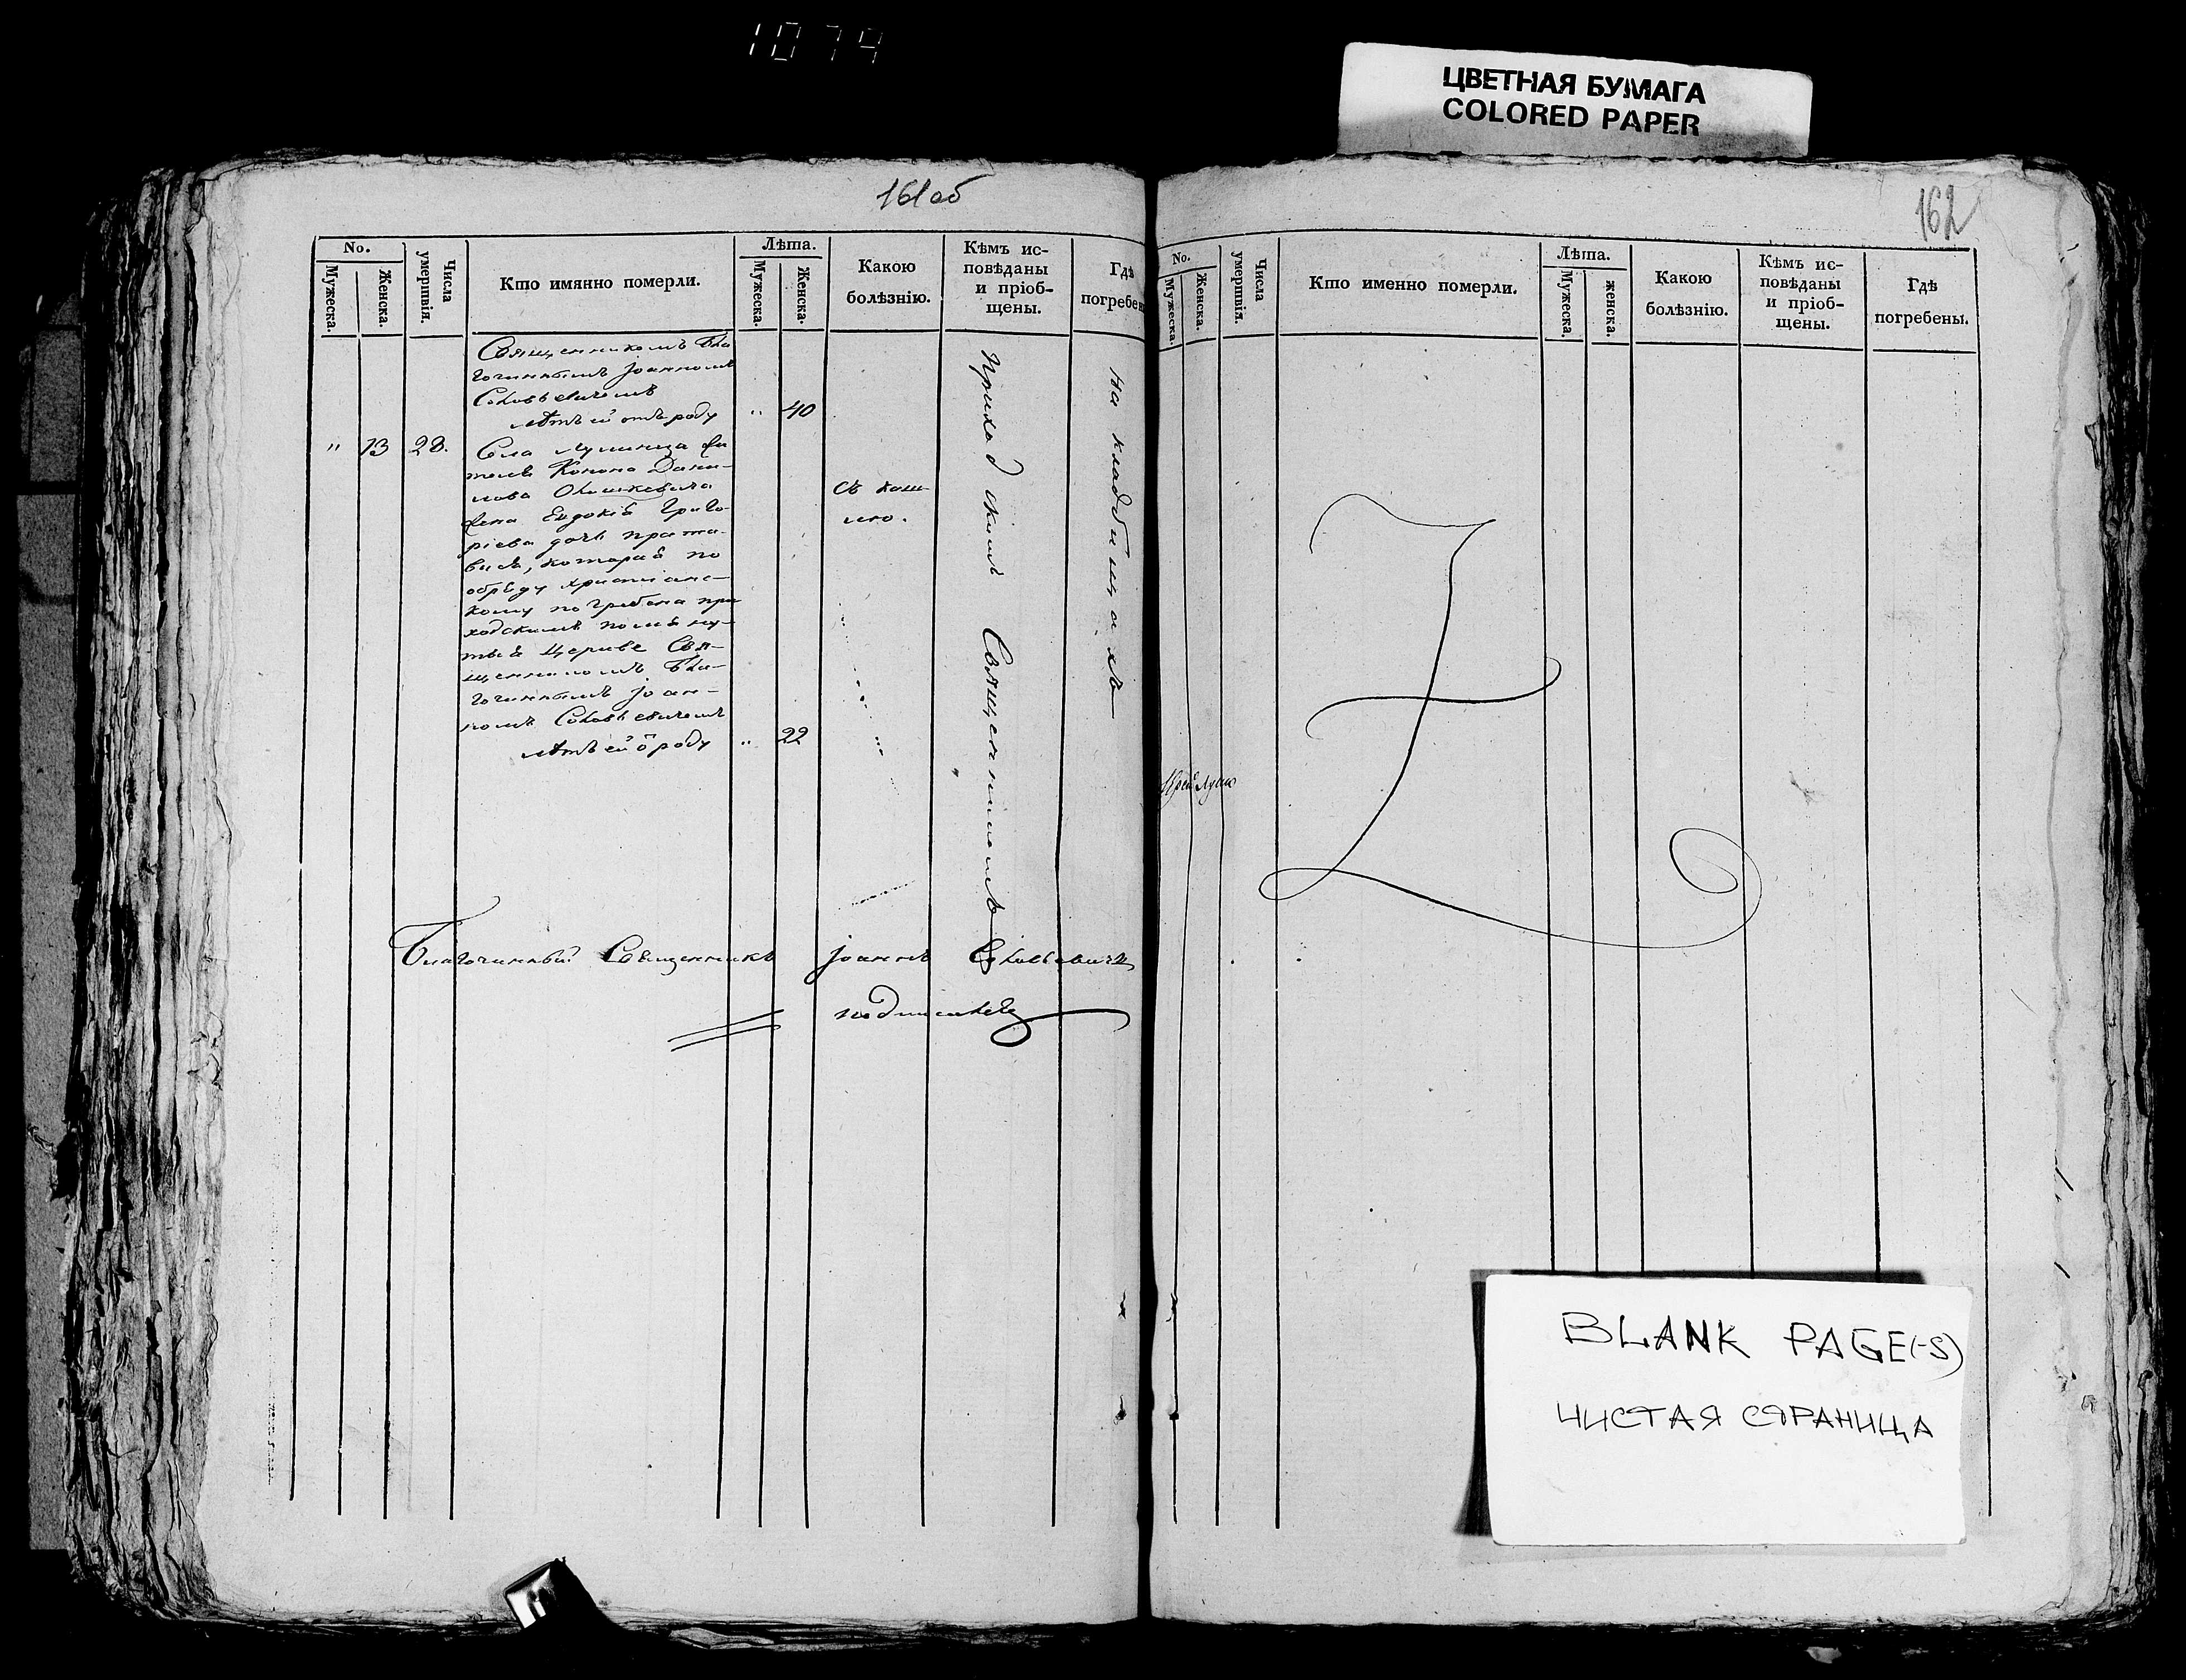 1074
ЦВЕТНАЯ БУМАГА
COLORED PAPER
161 об
No.
Мужеска.
Женска.
Числа умершвія.
Кто имянно померли.
Лѣта.
Мужеска.
Женска.
Какою болѣзнію.
Кѣмъ ис-
повѣданы
и пріоб-
щены.
Гдѣ
погребены
Священникомъ Бла
гочиннымъ Іоанномъ
Соловьевичемъ
лѣтъ ей отъ роду " 40
" 13 28. Села Лулинца жи
теля Конона Дани-
лова
жена Евдокія Григо-
ріева дочь преста-
вися, которая по
обряду христіанс-
кому погребена при
ходскимъ
Церкве Свя-
щенникомъ Бла-
гочиннымъ Іоан-
номъ Соловьевичемъ
лѣтъ ей о роду " 22
съ каш-
лю.
Приходскимъ Священникомъ
на кладбищахъ
Благочинный Священникъ Іоаннъ Соловьевичъ
подписалъ
162
No.
Мужеска.
Женска.
Числа умершвія.
Кто именно померли.
Лѣта.
Мужеска.
женска.
Какою
болѣзнію.
Кѣмъ ис-
повѣданы
и пріоб-
щены.
Гдѣ
погребены.
BLANK PAGE(-S)
ЧИСТАЯ СТРАНИЦА